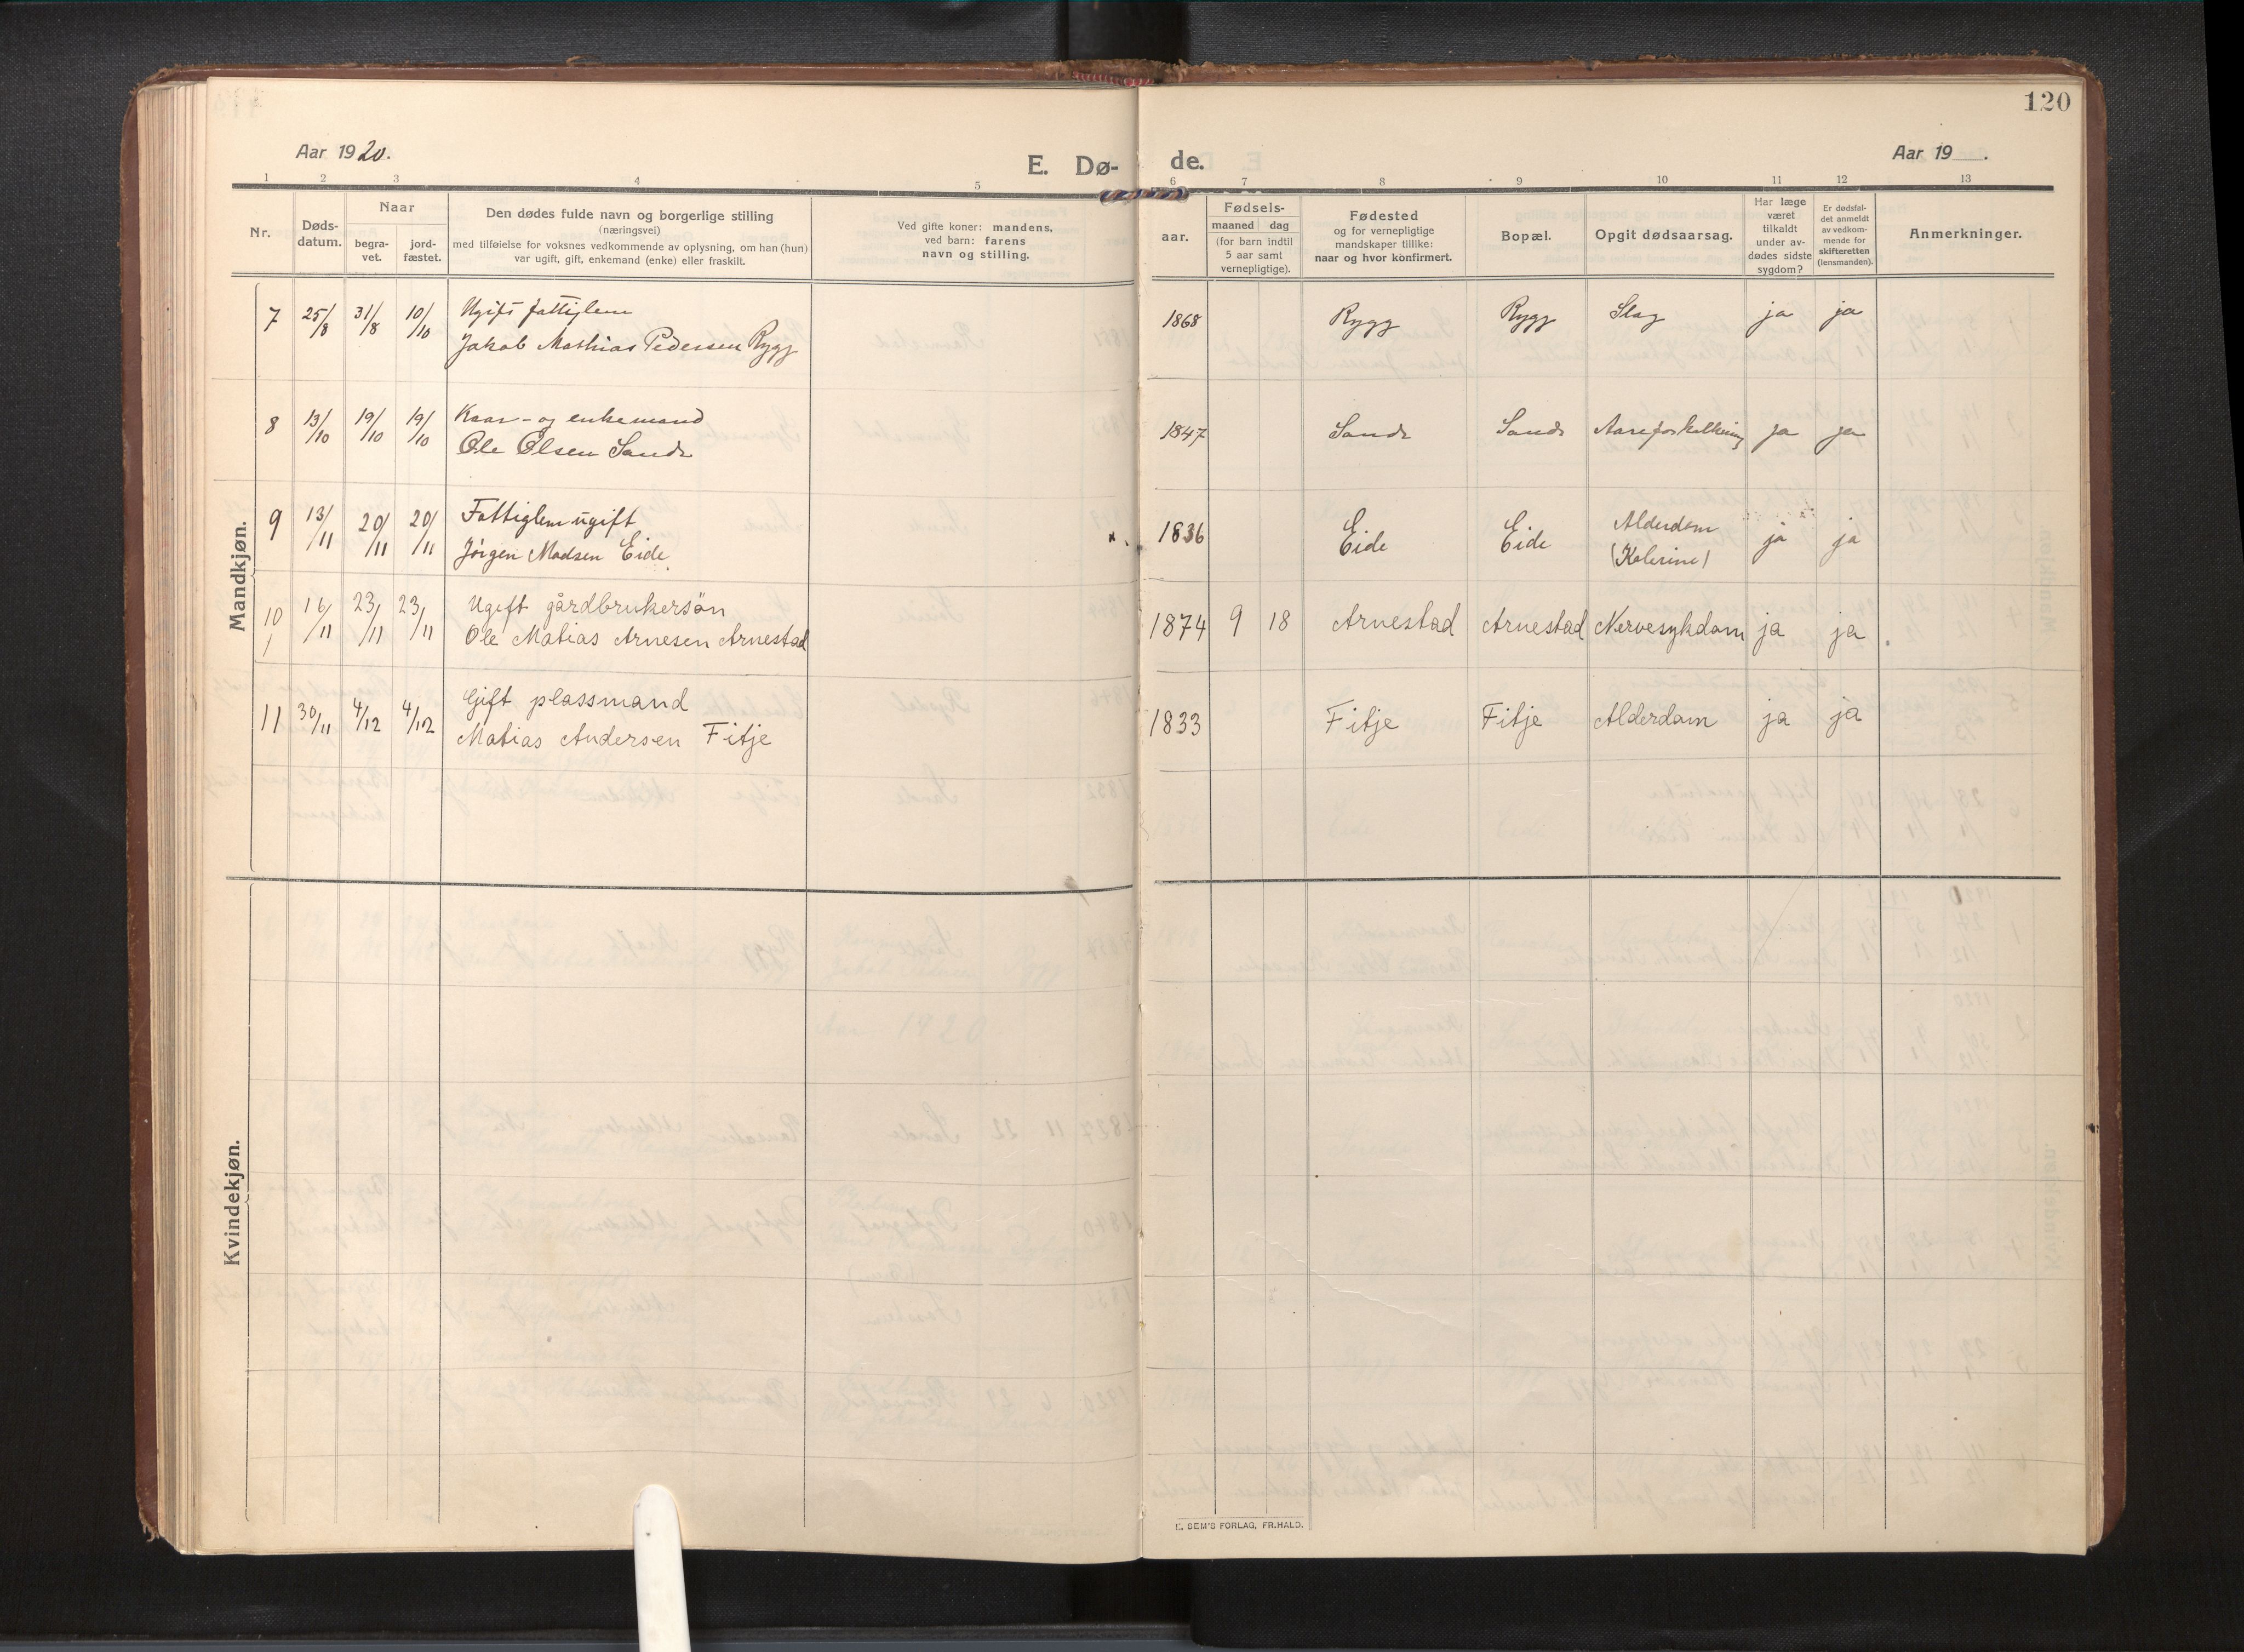 120
Aar 1920.
E. Dø- de.
Aar 19 .
1 2 3 4 5 6 7 8 9 10 11 12 13
Nr.
Døds-
datum.
Naar
begra-
vet.
jord-
fæstet.
Den dødes fulde navn og borgerlige stilling
(næringsvei)
med tilføielse for voksnes vedkommende av oplysning, om han (hun)
var ugift, gift, enkemand (enke) eller fraskilt.
Ved gifte koner: mandens,
ved barn: farens
navn og stilling.
aar.
Fødsels-
maaned dag
(for barn indtil
5 aar samt
vernepligtige).
Fødested
og for vernepligtige
mandskaper tillike:
naar og hvor konfirmert.
Bopæl.
Opgit dødsaarsag.
Har læge
været
tilkaldt
under av-
dødes sidste
sygdom?
Er dødsfal-
det anmeldt
av vedkom-
mende for
skifteretten
(lensmanden).
Anmerkninger.
Mandkjøn.
7 25/8 31/8 10/10 Ugift fattiglem
Jakob Mathias Pedersen Rygg 1868 Rygg Rygg Slag ja ja
8 13/10 19/10 19/10 Kaar- og enkemand
Ole Olsen Sande 1847 Sande Sande Aareforkalkning ja ja
9 13/11 20/11 20/11 Fattiglem ugift
Jörgen Madsen Eide 1836 Eide Eide Alderdom ja ja
10 16/11 23/11 23/11 Ugift gårdbrukersön
Ole Matias Arnesen Arnestad 1874 9 18 Arnestad Arnestad Nervesykdom ja ja
11 30/11 4/12 4/12 Gift plassmand
Matias Andersen Fitje 1833 Fitje Fitje Alderdom ja ja
Kvindekjøn.
E. SEM'S FORLAG, FR.HALD.